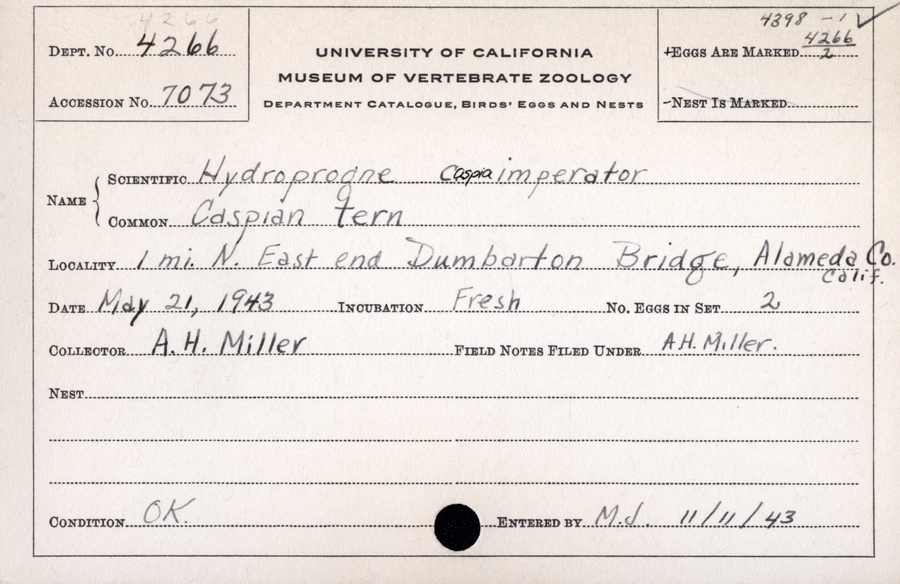 4266
4398 -1 ✓
DEPT. No. 4266
UNIVERSITY OF CALIFORNIA
MUSEUM OF VERTEBRATE ZOOLOGY
DEPARTMENT CATALOGUE, BIRDS' EGGS AND NESTS
+EGGS ARE MARKED 4266
2
ACCESSION No. 7073
-NEST IS MARKED
NAME
SCIENTIFIC Hydroprogne caspia imperator
COMMON Caspian tern
LOCALITY 1 mi. N. East end Dumbarton Bridge, Alameda Co.
Calif.
DATE May 21, 1943 INCUBATION Fresh No. EGGS IN SET 2
COLLECTOR A. H. Miller FIELD NOTES FILED UNDER A.H. Miller.
NEST
CONDITION OK. ENTERED BY M.J. 11/11/43